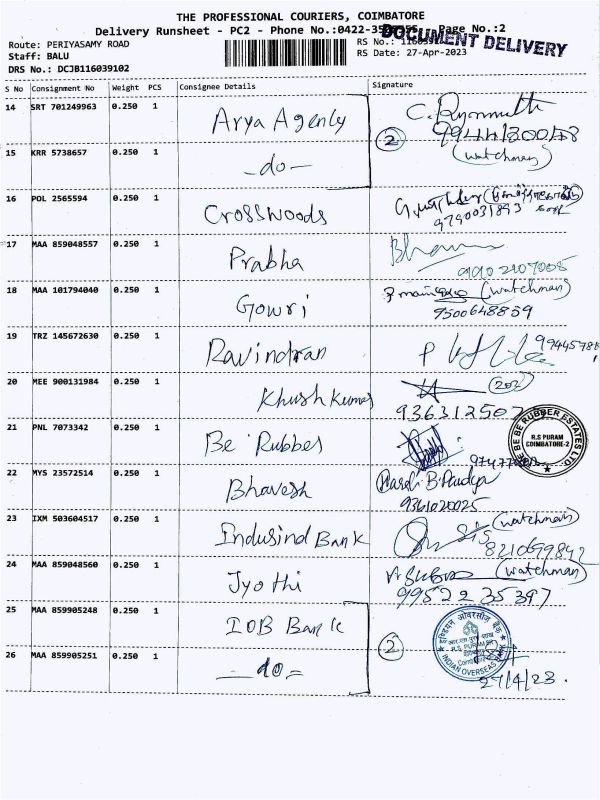 THE PROFESSIONAL COURIERS, COIMBATORE
Delivery Runsheet - PC2 - Phone No.:0422- Page No.:2
DOCUMENT DELIVERY
Route: PERIYASAMY ROAD
RS No.:
Staff: BALU
RS Date: 27-Apr-2023
DRS No.: DCJB116039102
S No Consignment No Weight PCS Consignee Details Signature
14 SRT 701249963 0.250 1 Arya Agenly
2
15 KRR 5738657 0.250 1 -do- (watchman)
16 POL 2565594 0.250 1 Crosswoods
9790031893
17 MAA 859048557 0.250 1 Prabha
18 MAA 101794040 0.250 1 Gowri (watchman)
9500648859
19 TRZ 145672630 0.250 1 Ravindran
20 MEE 900131984 0.250 1 Khush Kumar
936312507
21 PNL 7073342 0.250 1 Be Rubber
BE BE RUBBER ESTATES LTD.
R.S PURAM
COIMBATORE-2
22 MYS 23572514 0.250 1 Bhavesh
9361020025
23 IXM 503604517 0.250 1 Indusind Bank (watchman)
24 MAA 859048560 0.250 1 Jyothi (watchman)
99522 35397
25 MAA 859905248 0.250 1 IOB Bank
2
इण्डियन ओवरसीज़ बैंक
R.S. PURAM
INDIAN OVERSEAS BANK
26 MAA 859905251 0.250 1 -do-
27/4/23.